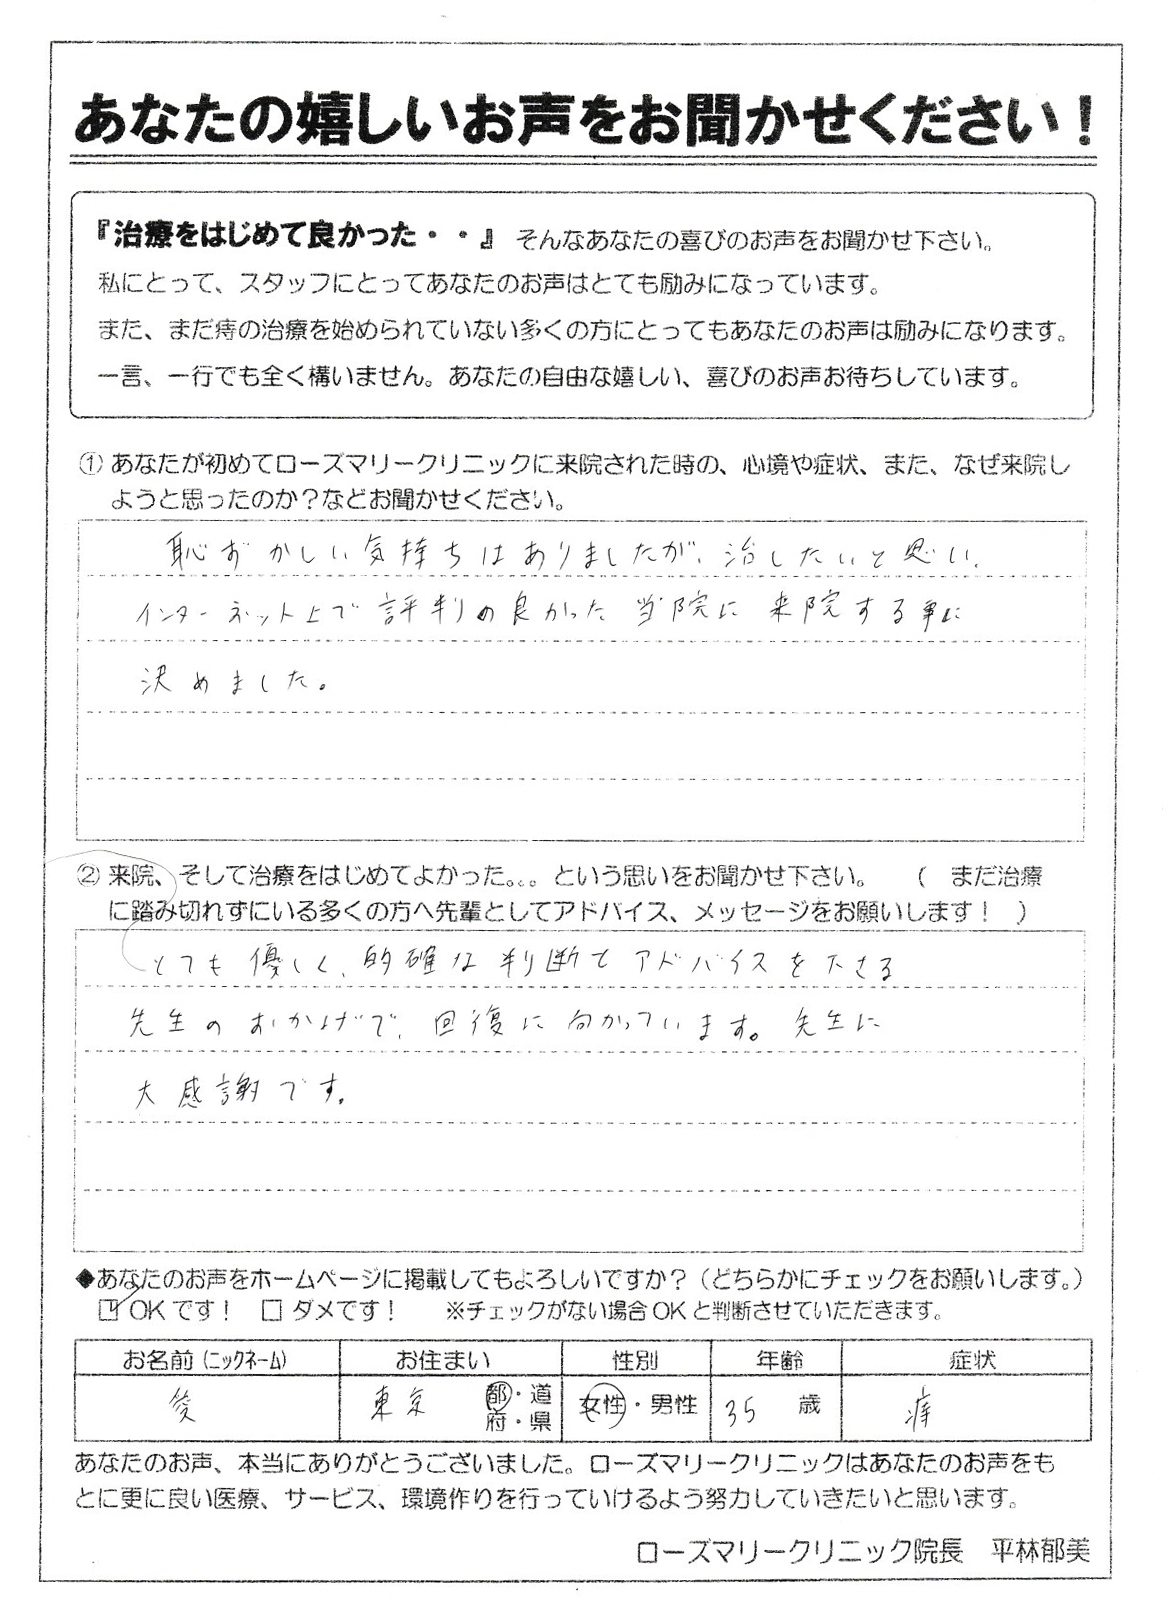 あなたの嬉しいお声をお聞かせください！
『治療をはじめて良かった・・』 そんなあなたの喜びのお声をお聞かせ下さい。
私にとって、スタッフにとってあなたのお声はとても励みになっています。
また、まだ痔の治療を始められていない多くの方にとってもあなたのお声は励みになります。
一言、一行でも全く構いません。あなたの自由な嬉しい、喜びのお声お待ちしています。
① あなたが初めてローズマリークリニックに来院された時の、心境や症状、また、なぜ来院し
ようと思ったのか？などお聞かせください。
恥ずかしい気持ちはありましたが、治したいと思い、
インターネット上で評判の良かった当院に来院する事に
決めました。
② 来院、そして治療をはじめてよかった。。。という思いをお聞かせ下さい。 （ まだ治療
に踏み切れずにいる多くの方へ先輩としてアドバイス、メッセージをお願いします！ ）
とても優しく、的確な判断とアドバイスを下さる
先生のおかげで、回復に向かっています。先生に
大感謝です。
◆あなたのお声をホームページに掲載してもよろしいですか？（どちらかにチェックをお願いします。）
☑ OKです！ □ ダメです！ ※チェックがない場合OKと判断させていただきます。
お名前（ニックネーム） お住まい 性別 年齢 症状
東京 都・道 女性・男性 35 歳 痔
府・県
あなたのお声、本当にありがとうございました。ローズマリークリニックはあなたのお声をも
とに更に良い医療、サービス、環境作りを行っていけるよう努力していきたいと思います。
ローズマリークリニック院長 平林郁美